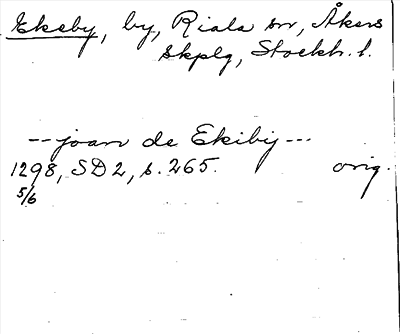 Ekeby, by, Riala sn, Åkers
skplg, Stockh. l.
--- joan de Ekibij ---
1298, SD2, s. 265. orig.
5/6